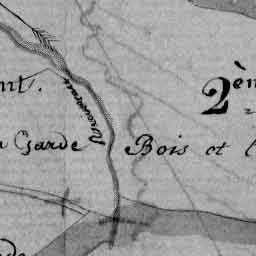 2èm
nt.
a Garde Bois et l